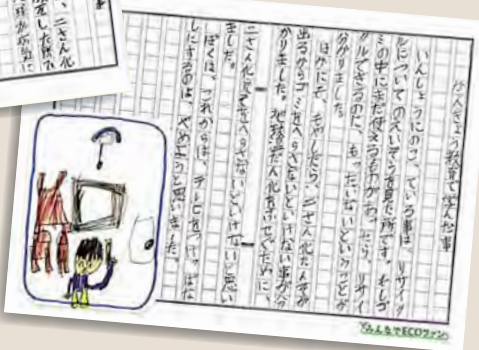 かんきょう教育で学んだ事
いんしょうにのこっている事は、リサイク
ルについてのえいぞうを見た所です。もしゴ
ミの中にまだ使えるものがあったら、リサイ
クルできるのに、もったいないということが
分かりました。
ほかにも、もやしたら、二さん化たんそが
出るからゴミをへらさないといけない事が分
かりました。地球温だん化をふせぐために、
二さん化たんそをへらさないといけないと思い
ました。
ぼくは、これからは、テレビをつけっぱな
しにするのは、やめようと思いました。
みんなでECOファン
二さん化